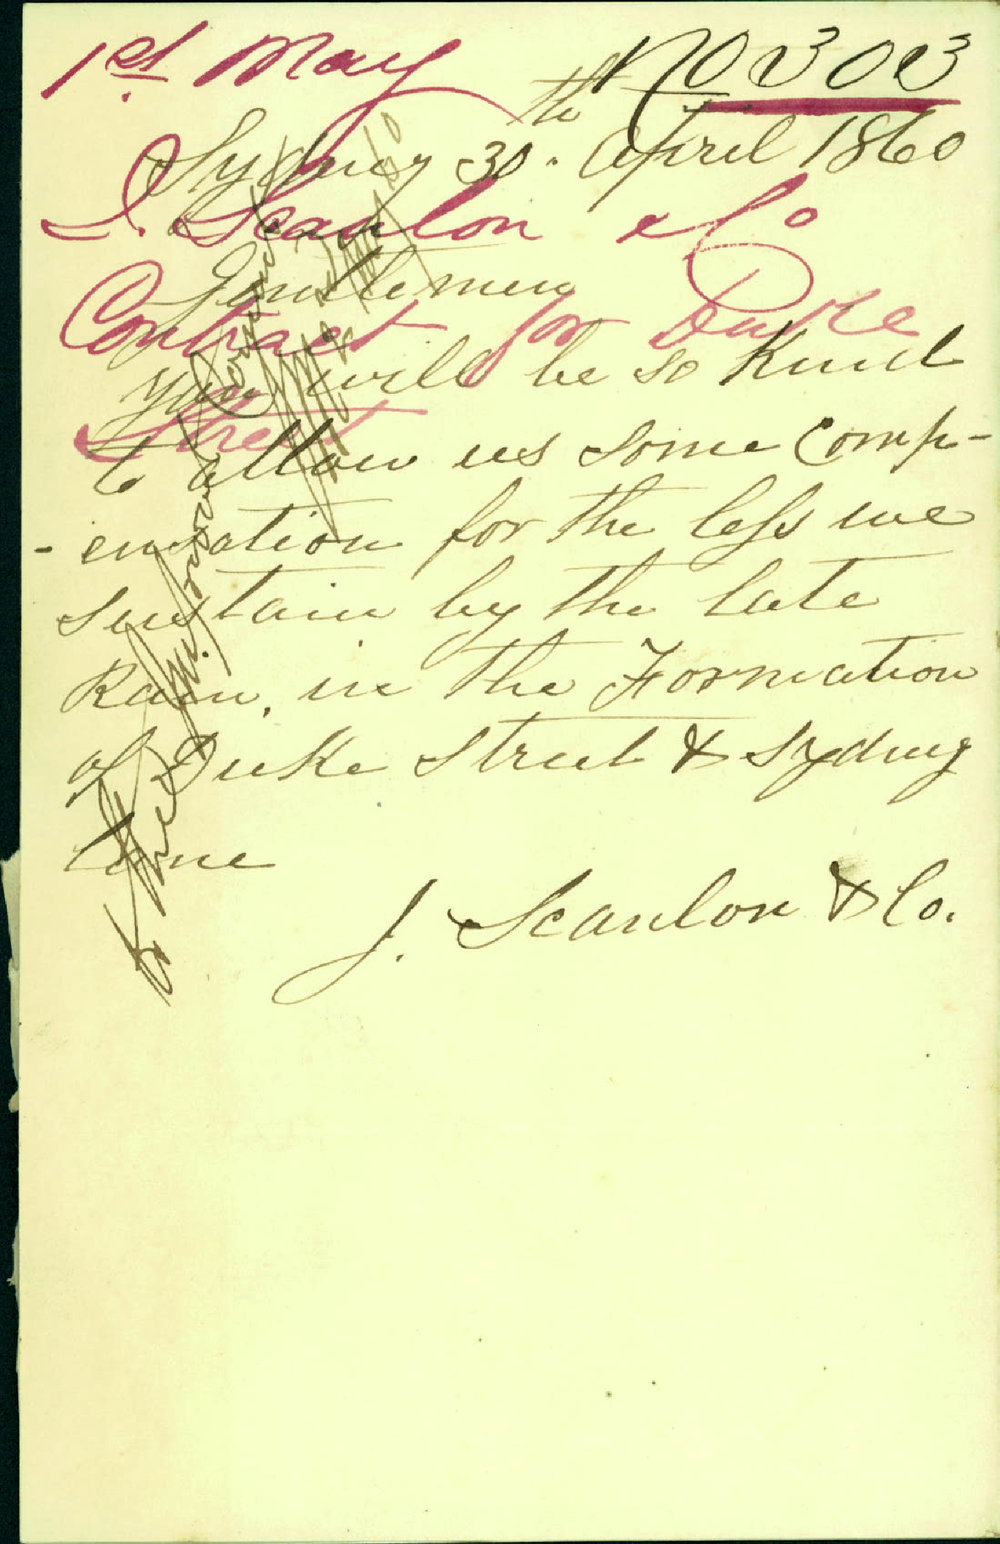 1st May
No 303
Sydney 30th April 1860
J. Scanlon & Co
Gentlemen
Contract for Duke
you will be so Kind
Street
to allow us some comp-
-ensation for the loss we
sustain by the late
Rain, in the Formation
of Duke Street & Sydney
lane
J. Scanlon & Co.